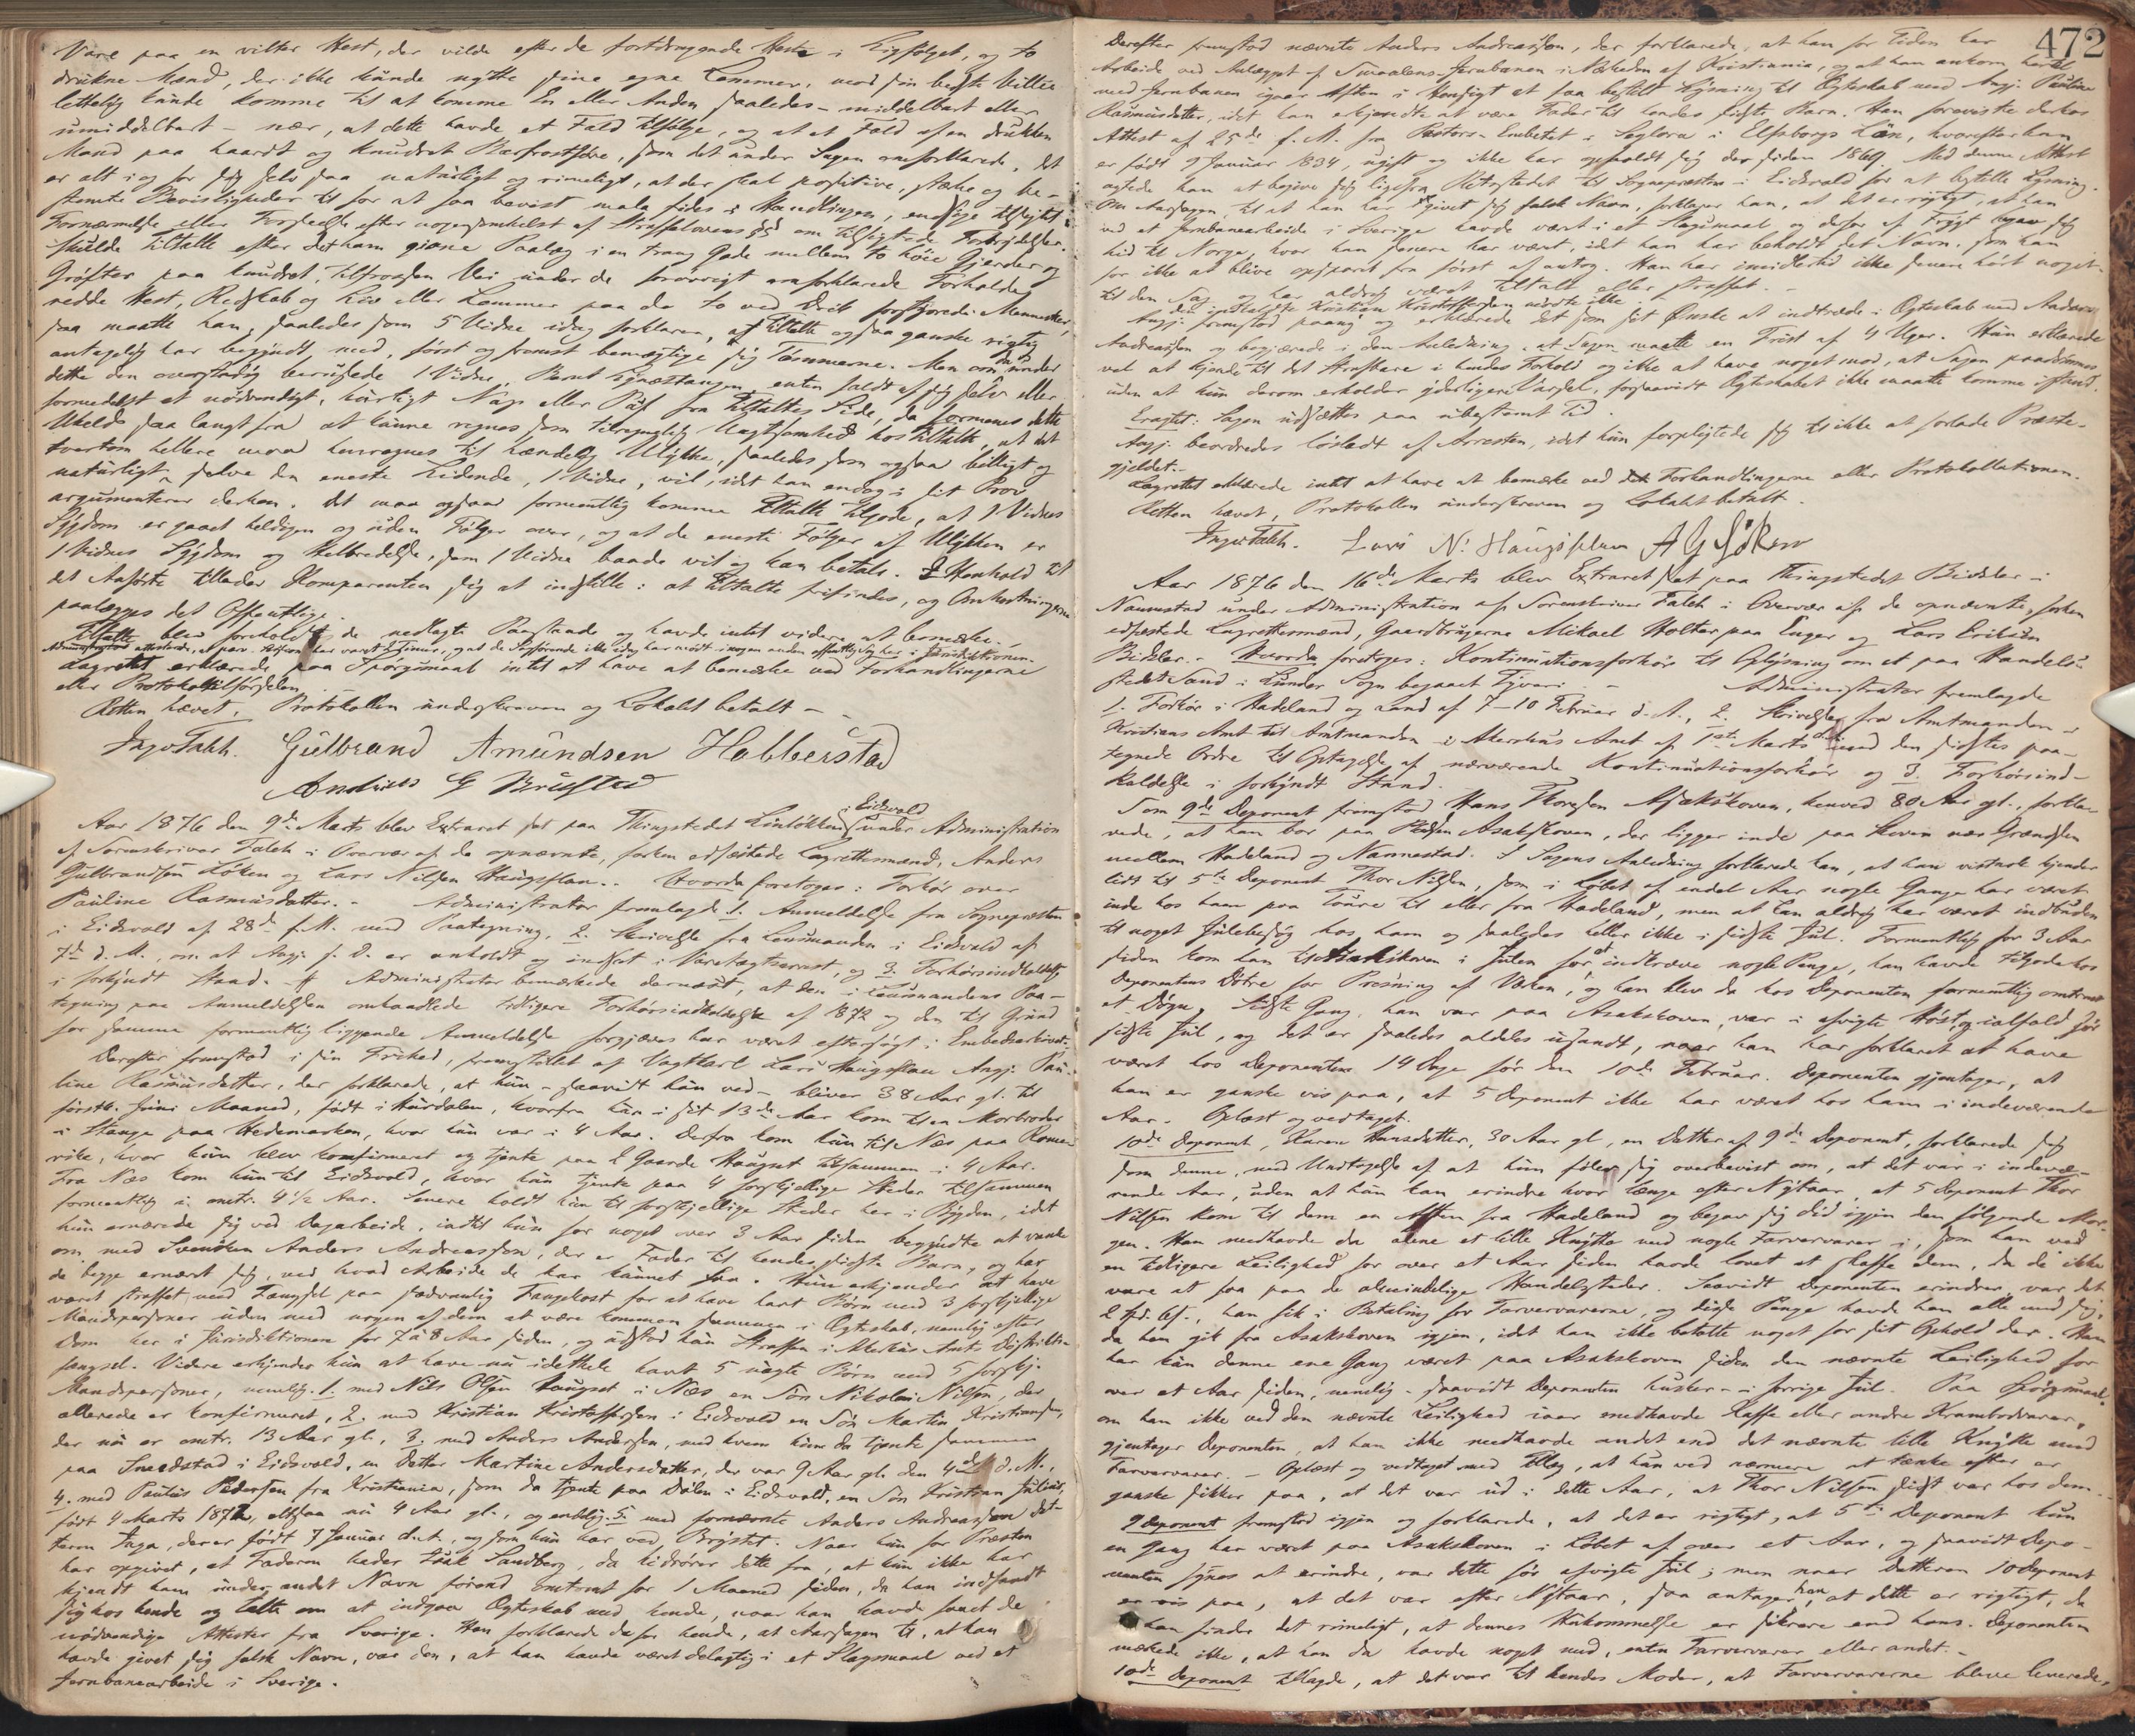 Vare paa en vilter Hest, der vilde efter de fortdragende Heste i Ligfølget, og to
drukne Mænd, der ikke kunde nytte sine egne Lemmer, mod sin bedste Villie
lettelig kunde komme til at komme En eller Anden saaledes – middelbart eller
umiddelbart – nær, at dette havde et Fald tilfølge, og at et Fald af en drukken
Mand paa haardt og knudret Barfrostføre, som det under Sagen omforklarede, det
er alt i og for sig selv saa naturligt og rimeligt, at der skal positive, stærke og be-
stemte Bevisligheder til for at faa bevist mala fides i Handlingen, endsige tilsigtet
Fornærmelse eller Forseelse efter nogensomhelst af Straffelovens §§ om tilsigtede Forbrydelser.
Skulde Tiltalte efter det ham givne Paalæg i en trang Gade mellem to høie Gjerder og
Grøfter paa knudret, tilfrossen Vei under de forøvrigt omforklarede Forholde
redde Hest, Redskab og Liv eller Lemmer paa de to ved Drik forstyrrede Mennesker,
saa maatte han, saaledes som 5 Vidne idag forklarer, at Tiltalte ogsaa ganske rigtig
antagelig har begyndt med, først og fremst bemægtige sig Tømmerne. Men om nu under
dette den overstadig berusede 1 Vidne, Bernt Egnæstangen enten faldt af sig selv eller
formedelst et nødvendigt, hurtigt Nap eller Puf fra Tiltaltes Side, da formenes dette
Uheld saa langt fra at kunne regnes som tilregnelig Uagtsomhed hos Tiltalte, at det
tvertom hellere maa henregnes til hændelig Ulykke, saaledes som ogsaa billigt og
naturligt selve den eneste Lidende, 1 Vidne, vil, idet han endog i sit Prov
argumenterer derhen. Det maa ogsaa formentlig komme Tiltalte tilgode, at 1 Vidnes
Sygdom er gaaet heldigen og uden Følger over, og at de eneste Følger af Ulykken er
1 Vidnes Sygdom og Helbredelse, som 1 Vidne baade vil og kan betale. I Henhold til
det Anførte tillader Komparenten sig at indstille: at Tiltalte frifindes, og Omkostningerne
paalægges det Offentlige.
Tiltalte blev foreholdt de nedlagte Paastande og havde intet videre at bemærke.
Administrator attesterede, at prv. Sagfører har været 2 Timer, og at de Sagførende ikke idag har mødt i nogen anden offentlig Sag her i Jurisdiktionen.
Lagrettet erklærede paa Spørgsmaal intet at have at bemærke ved Forhandlingerne
eller Protokoltilførselen.
Retten hævet, Protokollen underskreven og Lokalet betalt –
Ingv Falch. Gulbrand Amundsen Habberstad
Andreas G Brustad
Aar 1876 den 9de Marts blev Extraret sat paa Thingstedet Linløkken i Eidsvold under Administration
af Sorenskriver Falch i Overvær af de opnævnte, forhen edfæstede Lagrettesmænd, Anders
Gulbrandsen Løken og Lars Nilsen Haugsplan. – Hvorda foretoges: Forhør over
Pauline Rasmusdatter. – Administrator fremlagde 1. Anmeldelse fra Sognepræsten
i Eidsvold af 28de f. M. med Paategning, 2. Skrivelse fra Lensmanden i Eidsvold af
7de d. M., om at Angj. s. D. er anholdt og indsat i Varetægtsarrest, og 3. Forhørsindkaldelse
i forkyndt Stand. – Administrator bemærkede dernæst, at den i Lensmandens Paa-
tegning paa Anmeldelsen omhandlede tidligere Forhørsindkaldelse af 1872 og den til Grund
for samme formentlig liggende Anmeldelse forgjæves har været eftersøgt i Embedsarkivet.
Derefter fremstod i sin Frihed, fremstillet af Vagtkarl Lars Haugsplan Angj. Pau-
line Rasmusdatter, der forklarede, at hun – saavidt hun ved – bliver 38 Aar gl. til
førstk. Juni Maaned, født i Hurdalen, hvorfra hun i sit 13de Aar kom til en Morbroder
i Stange paa Hedemarken, hvor hun var i 4 Aar. Derfra kom hun til Næs paa Rome-
rike, hvor hun blev konfirmeret og tjente paa 2 Gaarde Haugset tilsammen i 4 Aar.
Fra Næs kom hun til Eidsvold, hvor hun tjente paa 4 forskjellige Steder tilsammen
formentlig i omtr. 4 1/2 Aar. Senere holdt hun til forskjellige Steder her i Bygden, idet
hun ernærede sig ved Dagarbeide, indtil hun for noget over 3 Aar siden begyndte at vanke
om med Svensken Anders Andreassen, der er Fader til hendes sidste Barn, og har
de begge ernæret sig ved hvad Arbeide de har kunnet faa. Hun erkjender at have
været straffet med Fængsel paa sædvanlig Fangekost for at have havt Børn med 3 forskjellige
Mandspersoner uden med nogen af dem at være kommen sammen i Ægteskab, nemlig efter
Dom her i Jurisdiktionen for 7 à 8 Aar siden, og udstod hun Straffen i Akershus Amts Distrikts-
fængsel. Videre erkjender hun at have nu idethele havt 5 uægte Børn med 5 forskj.
Mandspersoner, nemlig 1. med Nils Olsen Haugset i Næs en Søn Nikolai Nilsen, der
allerede er konfirmeret, 2. med Kristian Kristoffersen i Eidsvold en Søn Martin Kristiansen,
der nu er omtr. 13 Aar gl., 3. med Anders Andersen, med hvem hun da tjente sammen
paa Smedstad i Eidsvold, en Datter Martine Andersdatter, der var 9 Aar gl. den 4de d. M.,
4. med Paulus Pedersen fra Kristiania, som da tjente paa Dalen i Eidsvold, en Søn Kristian Julius,
født 4 Marts 1872, altsaa nu 4 Aar gl., og endelig 5. med fornævnte Anders Andreassen Dat-
teren Inga, der er født 7 Januar d. A., og som hun har ved Brystet. Naar hun for Præsten
har opgivet, at Faderen heder Isak Sandberg, da hidrører dette fra, at hun ikke har
kjendt ham under andet Navn førend omtrent for 1 Maaned siden, da han indfandt
sig hos hende og talte om at indgaa Ægteskab med hende, naar han havde faaet de
nødvendige Attester fra Sverige. Han forklarede da for hende, at Aarsagen til, at han
havde givet sig falsk Navn, var den, at han havde været delagtig i et Slagsmaal ved et
Jernbanearbeide i Sverige.
472
Derefter fremstod nævnte Anders Andreassen, der forklarede, at han for Tiden har
Arbeide ved Anlægget af Smaalens-Jernbanen i Nærheden af Kristiania, og at han ankom hertil
med Jernbanen igaar Aften i Hensigt at faa bestilt Lysning til Ægteskab med Angj. Pauline
Rasmusdatter, idet han erkjendte at være Fader til hendes sidste Barn. Han foreviste derhos
Attest af 25de f. M. fra Pastors-Embetet i Seglora i Elfsborgs Län, hvorefter han
er født 9 Januar 1834, ugift og ikke har opholdt sig der siden 1869. Med denne Attest
agtede han at begive sig ligefra Retsstedet til Sognepræsten i Eidsvold for at bestille Lysning.
Om Aarsagen til at han har givet sig falsk Navn, forklarer han, at det er rigtigt, at han
ved et Jernbanearbeide i Sverige havde vært i et Slagsmaal og derfor af Frygt begav sig
hid til Norge, hvor han senere har været, idet han har beholdt det Navn, som han
for ikke at blive opsporet fra først af antog. Han har imidlertid ikke senere hørt noget
til den Sag og har aldrig været tiltalt eller straffet. –
den indkaldte Kristian Kristoffersen mødte ikke.
Angj. fremstod paany og erklærede det som sit Ønske at indtræde i Ægteskab med Anders
Andreassen og begjærede i den Anledning, at Sagen maatte en Frist af 4 Uger. Hun erklærede
vel at kjende til det Strafbare i hendes Forhold og ikke at have noget mod, at Sagen paadømmes
uden at hun derom erholder yderligere Varsel, forsaavidt Ægteskabet ikke maatte komme istand.
Eragtet: Sagen udsættes paa ubestemt Tid.
Angj. beordredes løsladt af Arresten, idet hun forpligtede sig til ikke at forlade Præste-
gjeldet. –
Lagrettet erklærede intet at have at bemærke ved Forhandlingerne eller Protokollationen.
Retten hævet, Protokollen underskreven og Lokalet betalt.
Ingv Falch. Lars N. Haugsplan A G Løken
Aar 1876 den 16de Marts blev Extraret sat paa Thingstedet Bidsler i
Nannestad under Administration af Sorenskriver Falch i Overvær af de opnævnte, forhen
edfæstede Lagrettesmænd, Gaardbrugerne Mikael Holter paa Enger og Lars Eriksen
Bidsler. – Hvorda foretoges: Kontinuationsforhør til Oplysning om et paa Handels-
stedet Sand i Lunder Sogn begaaet Tyveri. – Administrator fremlagde
1. Forhør i Hadeland og Land af 7–10 Februar d. A., 2. Skrivelse fra Amtmanden i
Kristians Amt til Amtmanden i Akershus Amt af 1ste Marts d. A. med den sidstes paa-
tegnede Ordre til Optagelse af nærværende Kontinuationsforhør og 3. Forhørsind-
kaldelse i forkyndt Stand.
Som 9de Deponent fremstod Hans Thoresen Asakskoven, henved 80 Aar gl., forkla-
rede, at han bor paa Pladsen Asakskoven, der ligger inde paa Skoven nær Grændsen
mellem Hadeland og Nannestad. I Sagens Anledning forklarede han, at han vistnok kjender
lidt til 5te Deponent Thor Nilsen, som i Løbet af endel Aar nogle Gange har været
inde hos ham paa Toure til eller fra Hadeland, men at han aldrig har været indbuden
til noget Julebesøg hos ham og saaledes heller ikke i sidste Jul. Formentlig for 3 Aar
siden kom han til Asakskoven i Julen for at indkræve nogle Penge, han havde tilgode hos
Deponentens Døtre for Presning af Vaken, og han blev da hos Deponenten formentlig omtrent
et Døgn. Sidste Gang, han var paa Asakskoven, var i afvigte Høst, og ialfald før
sidste Jul, og det er saaledes aldeles usandt, naar han har forklaret at have
været hos Deponenten 14 Dage før den 10de Februar. Deponenten gjentager, at
han er ganske vis paa, at 5 Deponent ikke har været hos ham i indeværende
Aar. – Oplæst og vedtaget.
10de Deponent, Karen Hansdatter, 30 Aar gl., en Datter af 9de Deponent, forklarede sig
som denne, med Undtagelse af at hun føler sig overbevist om, at det var i indevæ-
rende Aar, uden at hun kan erindre hvor længe efter Nytaar, at 5 Deponent Thor
Nilsen kom til dem en Aften fra Hadeland og begav sig did igjen den følgende Mor-
gen. Han medhavde da alene et lille Knytte med nogle Farvervarer i, som han ved
en tidligere Leilighed for over et Aar siden havde lovet at skaffe dem, da de ikke
vare at faa paa de almindelige Handelssteder. Saavidt Deponenten erindrer, var det
2 Spd. 6 s., han fik i Betaling for Farvervarerne, og disse Penge havde han alle med sig,
da han gik fra Asakskoven igjen, idet han ikke betalte noget for sit Ophold der. Han
har kun denne ene Gang været paa Asakskoven siden den nævnte Leilighed for
over et Aar siden, nemlig – saavidt Deponenten husker – i forrige Jul. Paa Spørgsmaal
om han ikke ved den nævnte Leilighed iaar medhavde Kaffe eller andre Krambodvarer,
gjentager Deponenten, at han ikke medhavde andet end det nævnte lille Knytte med
Farvervarer. – Oplæst og vedtaget med Tillæg, at hun ved nærmere at tænke efter er
ganske sikker paa, at det var ud i dette Aar, at Thor Nilsen sidst var hos dem. –
9 Deponent fremstod igjen og forklarede, at det er rigtigt, at 5te Deponent kun
en Gang har været paa Asakskoven i Løbet af over et Aar, og saavidt Depo-
nenten synes at erindre, var dette før afvigte Jul; men naar Datteren 10 Deponent
er vis paa, at det var efter Nytaar, saa antager han, at dette er rigtigt, da
han finder det rimeligt, at dennes Hukommelse er sikrere end hans. Deponenten
mærkede ikke, at han da havde noget med, enten Farvervarer eller andet. –
10de Deponent tillagde, at det var til hendes Moder, at Farvervarerne bleve leverede,